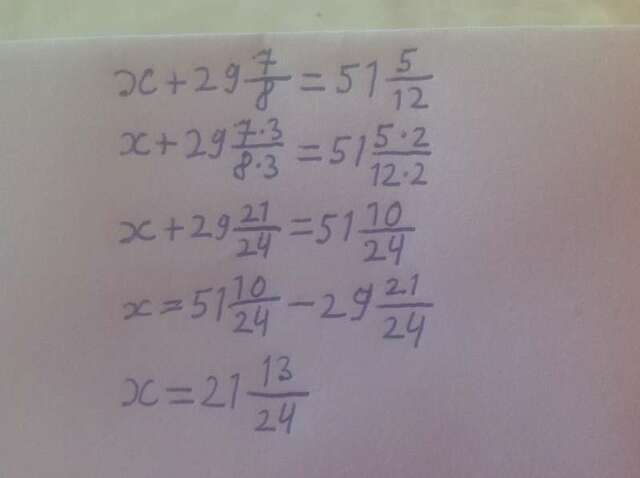 x + 29 7/8 = 51 5/12
x + 29 7·3/8·3 = 51 5·2/12·2
x + 29 21/24 = 51 10/24
x = 51 10/24 − 29 21/24
x = 21 13/24